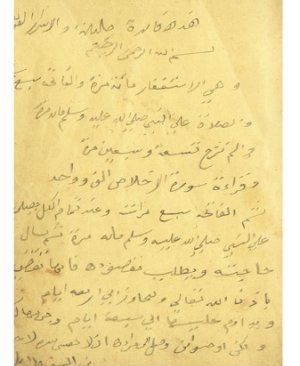 هذه فائدة جليلة و الاسرار
بسم الله الرحمن الرحيم
و هي الاستغفار مائة مرة و الفاتحة سبع
و الصلاة علي النبي صلي الله عليه و سلم مائة مرة
و الم نشرح تسعة و سبعين مرة
و قراءة سورة الاخلاص الف و واحد
ثم الفاتحة سبع مرات و عند تمام الكل يصلي
علي النبي صلي الله عليه و سلم مائة مرة ثم يسال
حاجته و يطلب مقصوده فانها تقضي
باذن الله تعالي و يجاوز الي اربعة ايام
و يداوم عليها الي سبعة ايام و